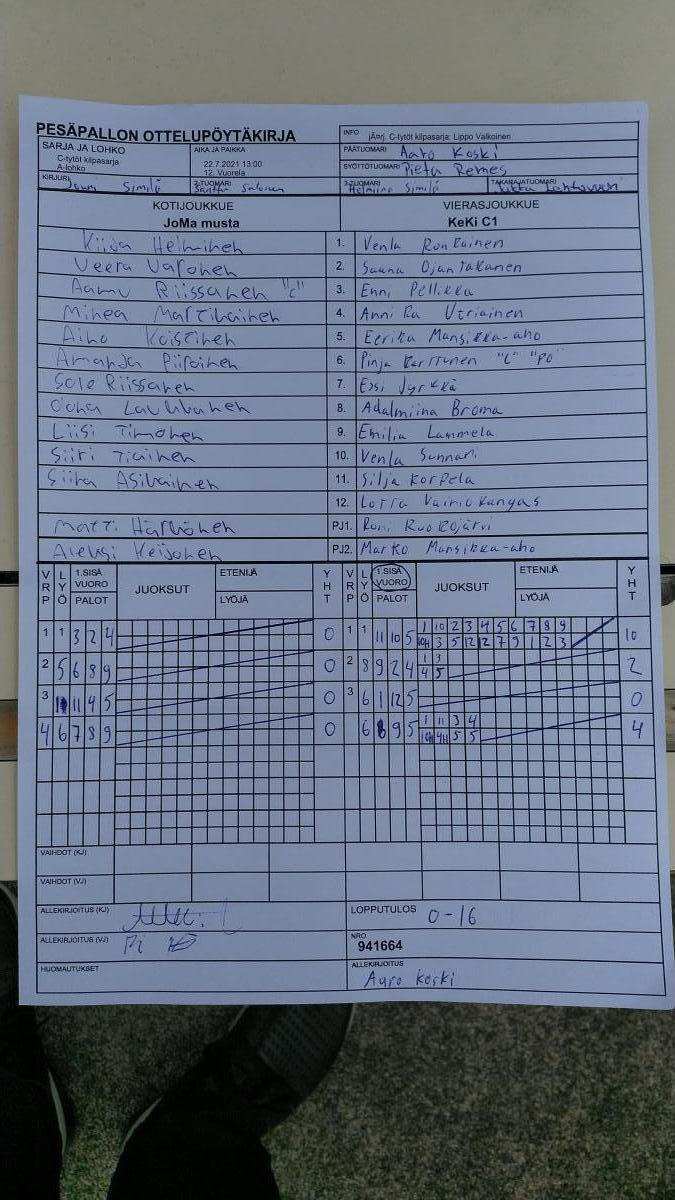 PESÄPALLON OTTELUPÖYTÄKIRJA
INFO jÄrrj. C-tytöt kilpasarja: Lippo Valkoinen
SARJA JA LOHKO
C-tytöt kilpasarja
A-lohko
AIKA JA PAIKKA
22.7.2021 13:00
12. Vuorela
PÄÄTUOMARI Aaro Koski
SYÖTTÖTUOMARI Pieta Remes
KIRJURI Similä
2-TUOMARI
3-TUOMARI Helmiina Similä
TAKARAJATUOMARI Jukka
KOTIJOUKKUE VIERASJOUKKUE
JoMa musta KeKi C1
Kiija Helminen 1. Venla Ronkainen
Veera Varonen 2. Saana Ojantakanen
Aamu Riissanen "C" 3. Enni Pellikka
Minea Martikainen 4. Anniika Utriainen
Aino Koistinen 5. Eerika Mansikka-aho
Amanda Piiroinen 6. Pinja Karttunen "C" "PO"
Sole Riissanen 7. Essi Jyrkkä
Oona Laukkanen 8. Adalmiina Broma
Liisi Timonen 9. Emilia Lammela
Siiri Tiainen 10. Venla Sunnari
Siina Asikainen 11. Silja Korpela
12. Lotta Vainiokangas
Matti Härkönen PJ1. Roni Ruokojärvi
Aleksi Keijonen PJ2. Marko Mansikka-aho
VRP LYÖ 1.SISÄ VUORO PALOT JUOKSUT ETENIJÄ LYÖJÄ YHT VRP LYÖ 1.SISÄ VUORO PALOT JUOKSUT ETENIJÄ LYÖJÄ YHT
1 1 3 2 4 0 1 1 11 10 5 1 10 2 3 4 5 6 7 8 9 10
10H 3 5 12 12 7 9 1 2 3
2 5 6 8 9 0 2 8 9 2 4 1 3 2
4 5
3 11 4 5 0 3 6 1 12 5 0
4 6 7 8 9 0 6 9 5 1 11 3 4 4
10H 4H 5 5
VAIHDOT (KJ)
VAIHDOT (VJ)
ALLEKIRJOITUS (KJ) LOPPUTULOS 0-16
ALLEKIRJOITUS (VJ) NRO 941664
HUOMAUTUKSET ALLEKIRJOITUS Aaro Koski